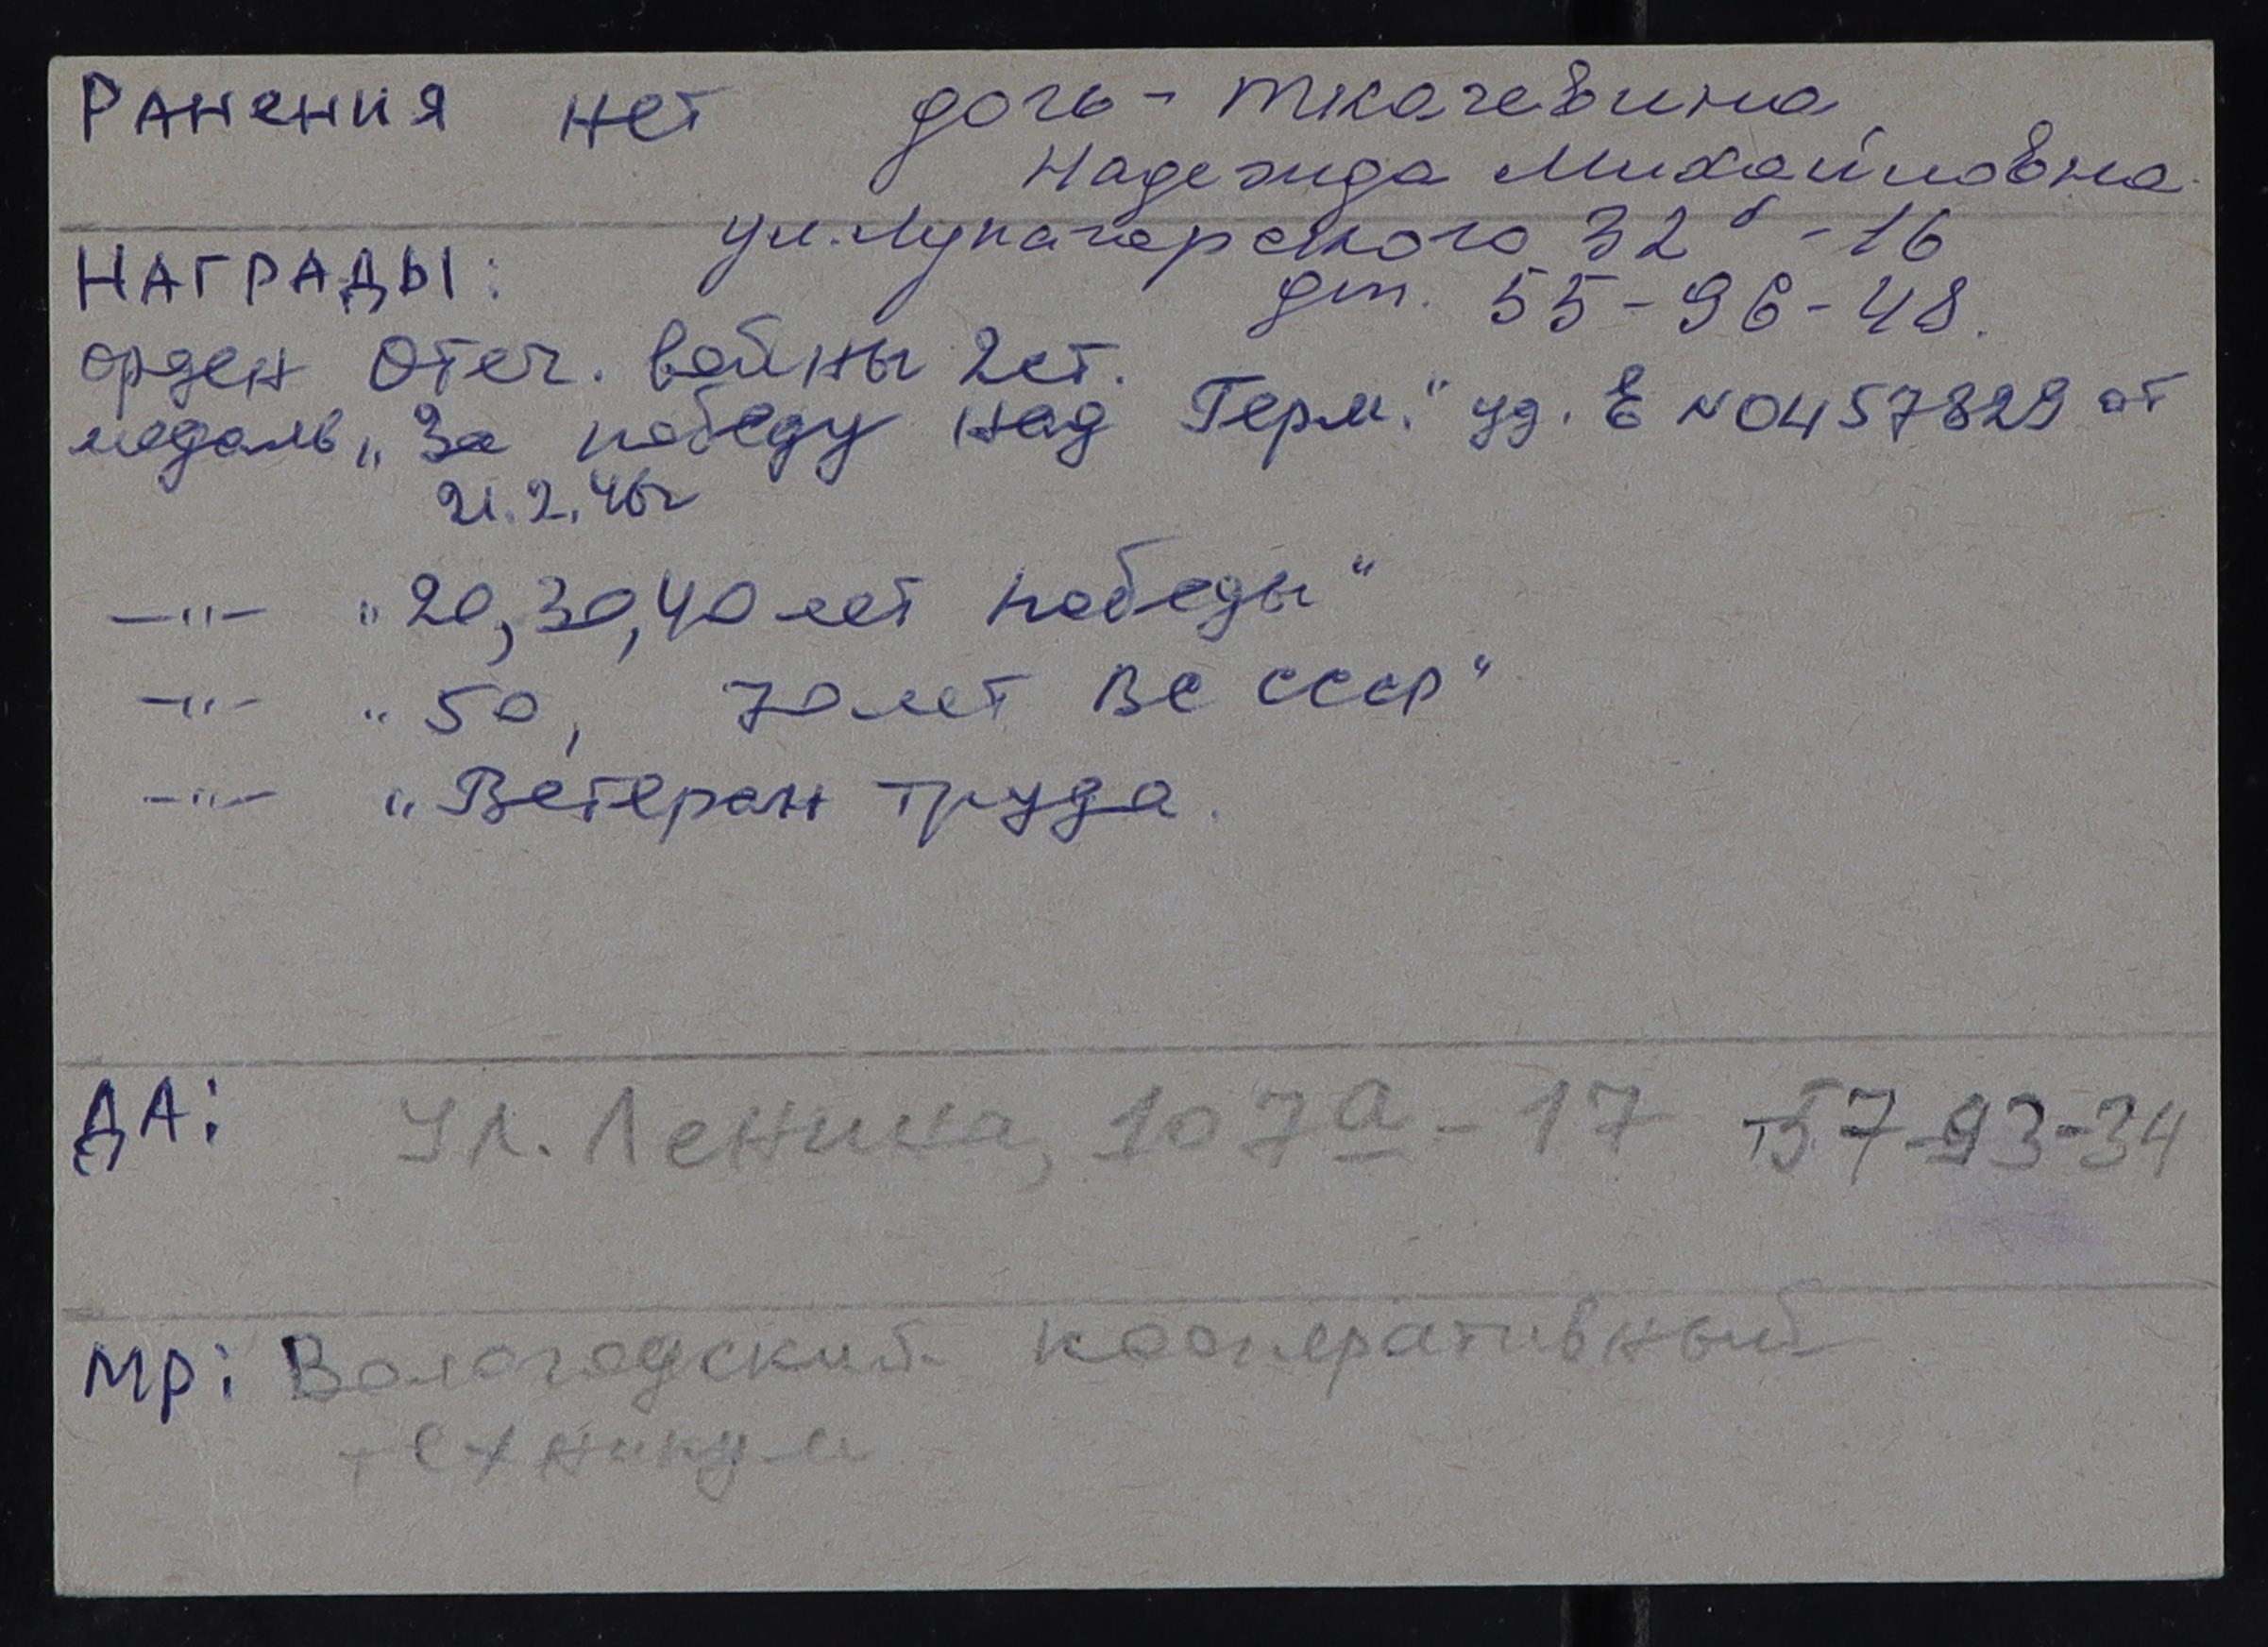 Ранения нет дочь - Ткачевина
Надежда Михайловна.
ул. Луначарского 32б - 16
НАГРАДЫ: дт. 55-96-48.
орден Отеч. войны 2 ст.
медаль „За победу над Герм." уд. Е №0457829 от
21.2.46г
—"— „20, 30, 40 лет победы"
—"— „50, 70 лет ВС СССР"
—"— „Ветеран труда.
ДА: ул. Ленина, 107а - 17 т 57-93-34
МР: Вологодский кооперативный
техникум